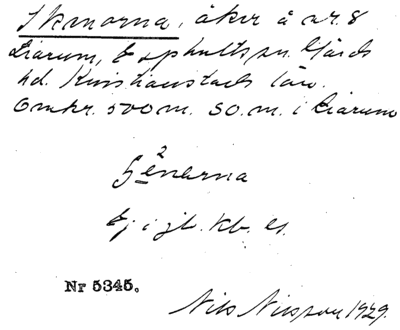 Skenorna, åker å nr. 8
Liarum, Espholts sn. Gärds
hd. Kristianstads län.
Omkr. 500 m. SO. m. i Liarum
Ej i jb. kb. el.
Nr 5345.
Nils Nilsson 1929.